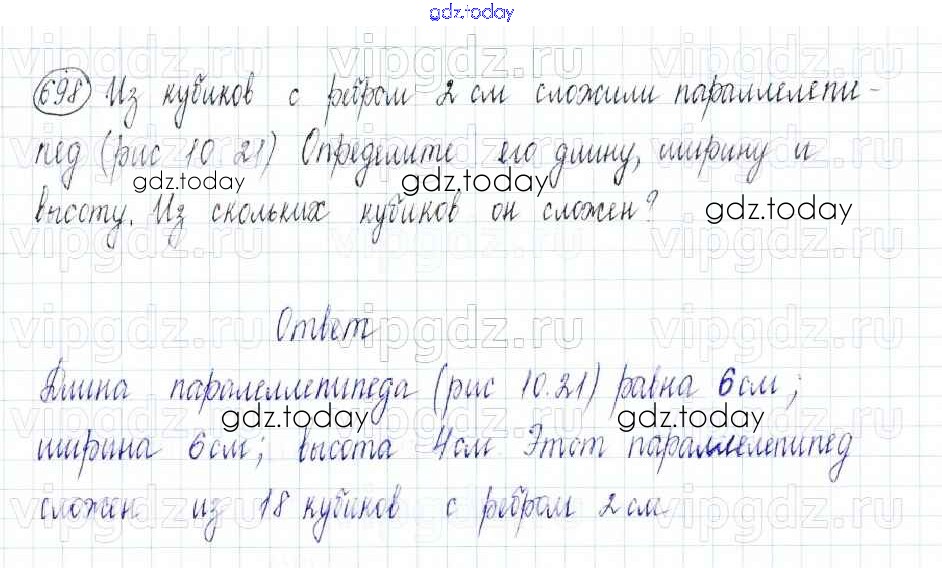 gdz.today
698 Из кубиков с ребром 2 см сложили параллелепи-
пед (рис 10 21) Определите его длину, ширину и
gdz.today gdz.today
высоту. Из скольких кубиков он сложен? gdz.today
Ответ
Длина паралеллепипеда (рис 10.21) равна 6 см;
gdz.today gdz.today
ширина 6 см; высота 4 см Этот параллелепипед
сложен из 18 кубиков с ребром 2 см